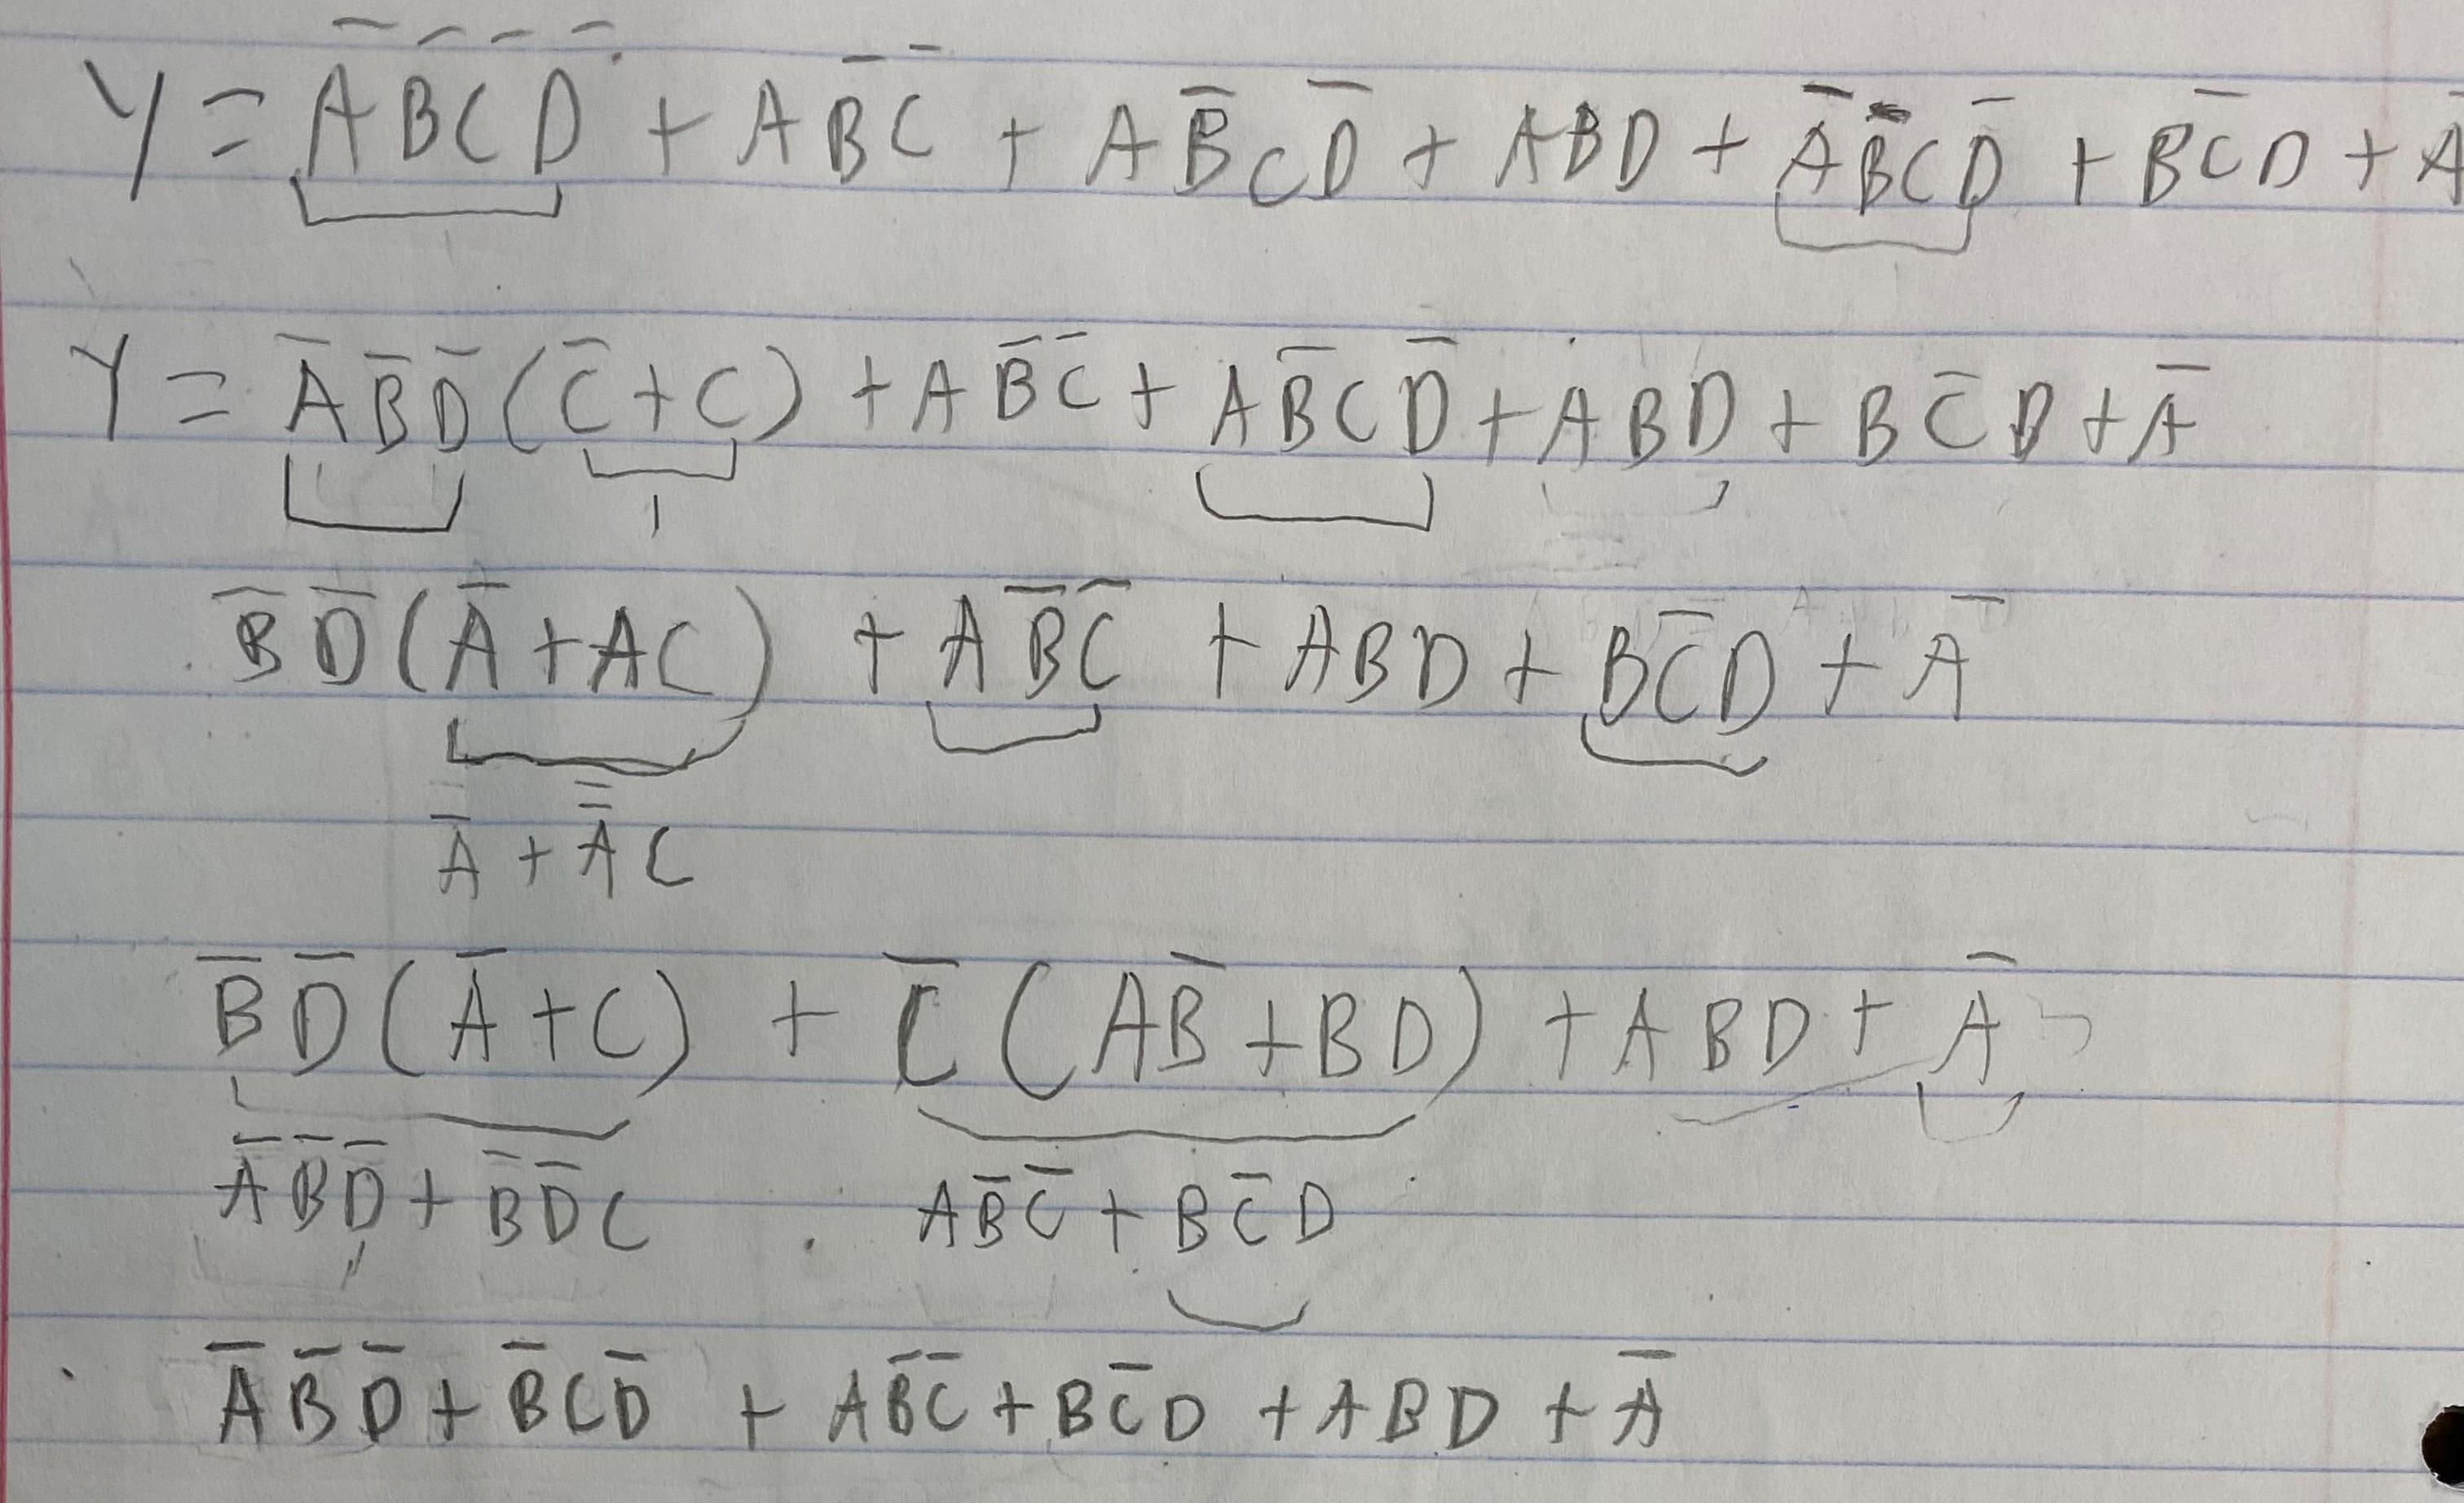 Y = A̅ B̅ C̅ D̅ + A B̅ C̅ + A B̅ C D̅ + A B D + A̅ B̅ C D̅ + B C̅ D + A̅
Y = A̅ B̅ D̅ ( C̅ + C ) + A B̅ C̅ + A B̅ C D̅ + A B D + B C̅ D + A̅
1
B̅ D̅ ( A̅ + A C ) + A B̅ C̅ + A B D + B C̅ D + A̅
A̅ + A̿ C
B̅ D̅ ( A̅ + C ) + C̅ ( A B̅ + B D ) + A B D + A̅
A̅ B̅ D̅ + B̅ D̅ C A B̅ C̅ + B C̅ D
A̅ B̅ D̅ + B̅ C D̅ + A B̅ C̅ + B C̅ D + A B D + A̅